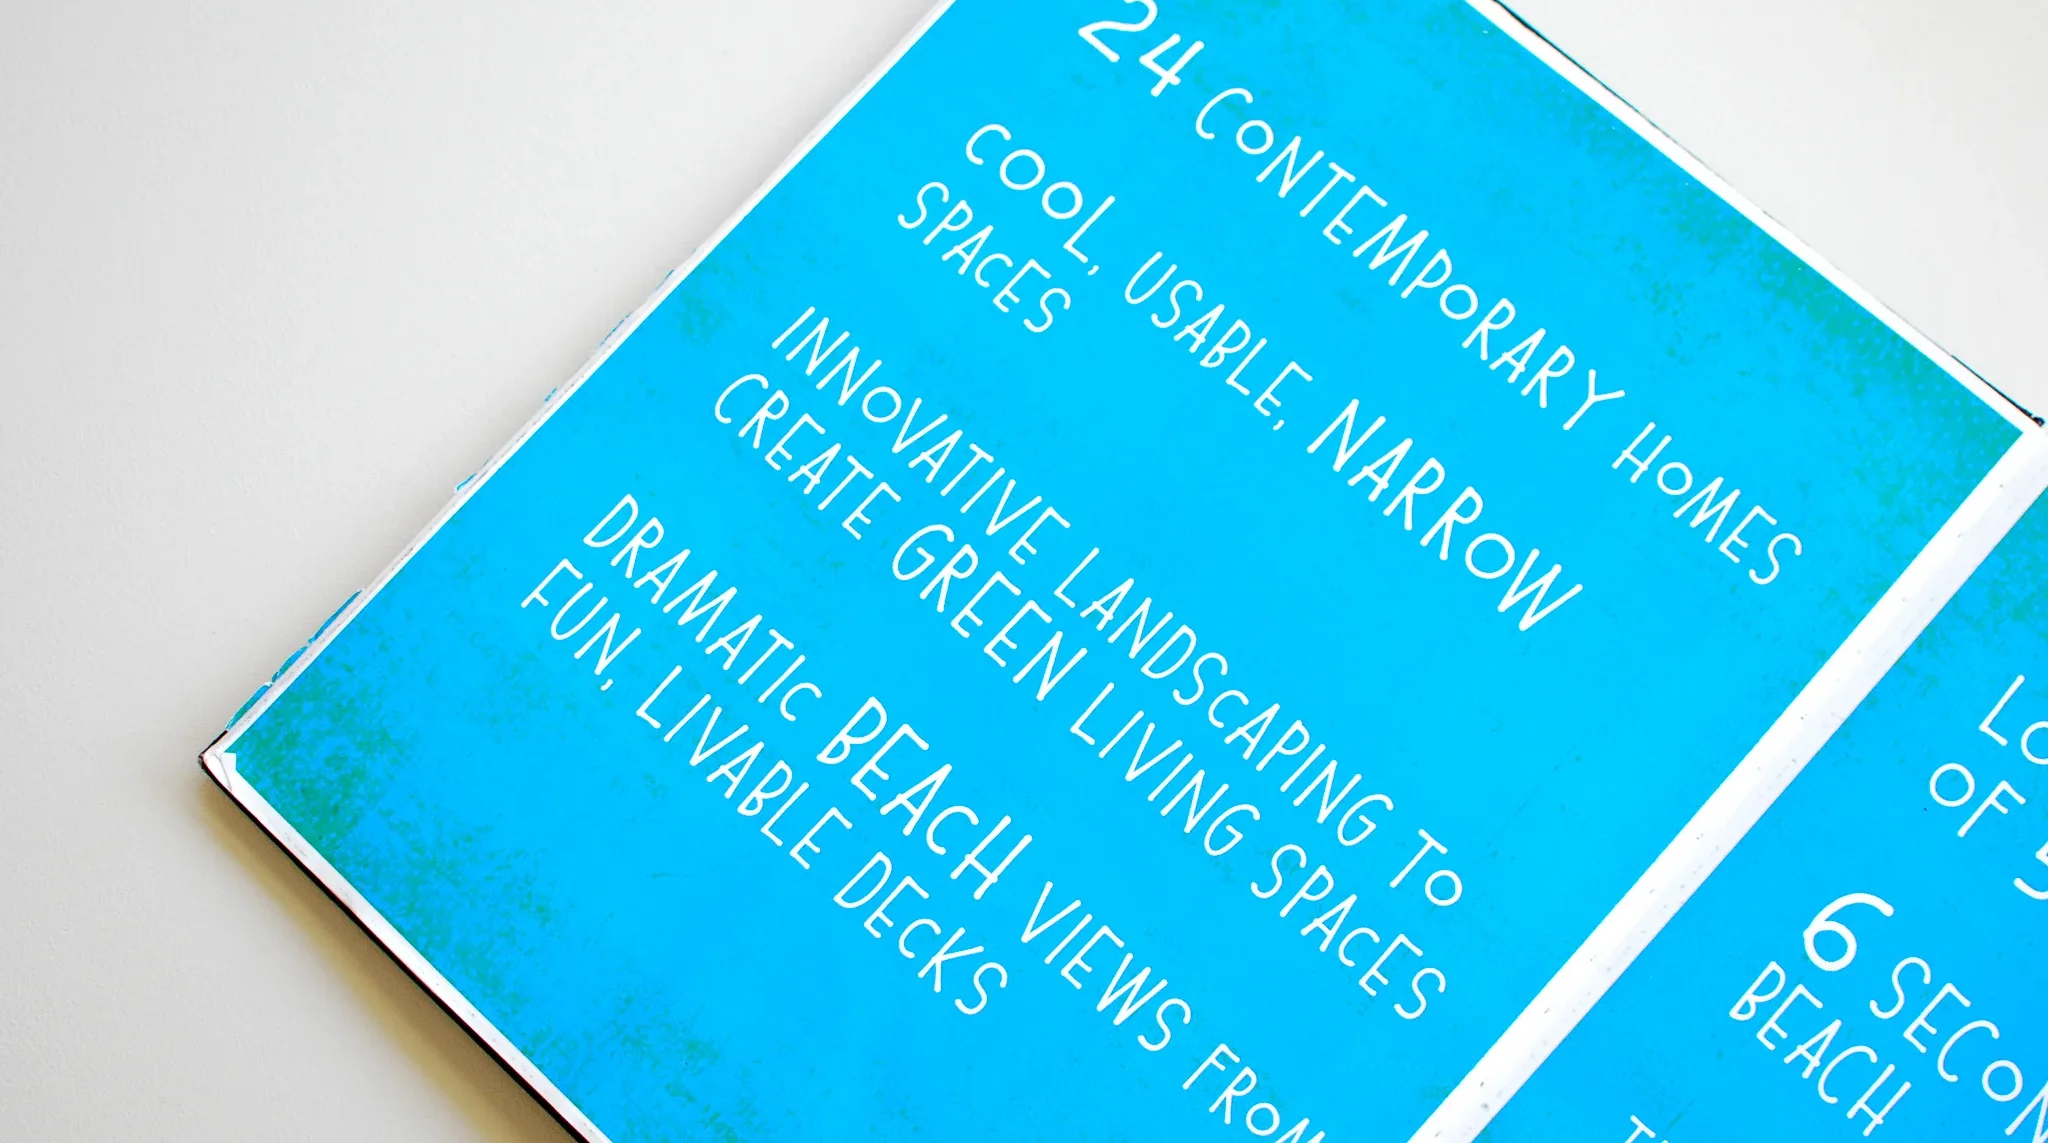 24 CONTEMPORARY HOMES
COOL, USABLE, NARROW
SPACES
INNOVATIVE LANDSCAPING TO
CREATE GREEN LIVING SPACES
DRAMATIC BEACH VIEWS FROM
FUN, LIVABLE DECKS
OF
6
BEACH